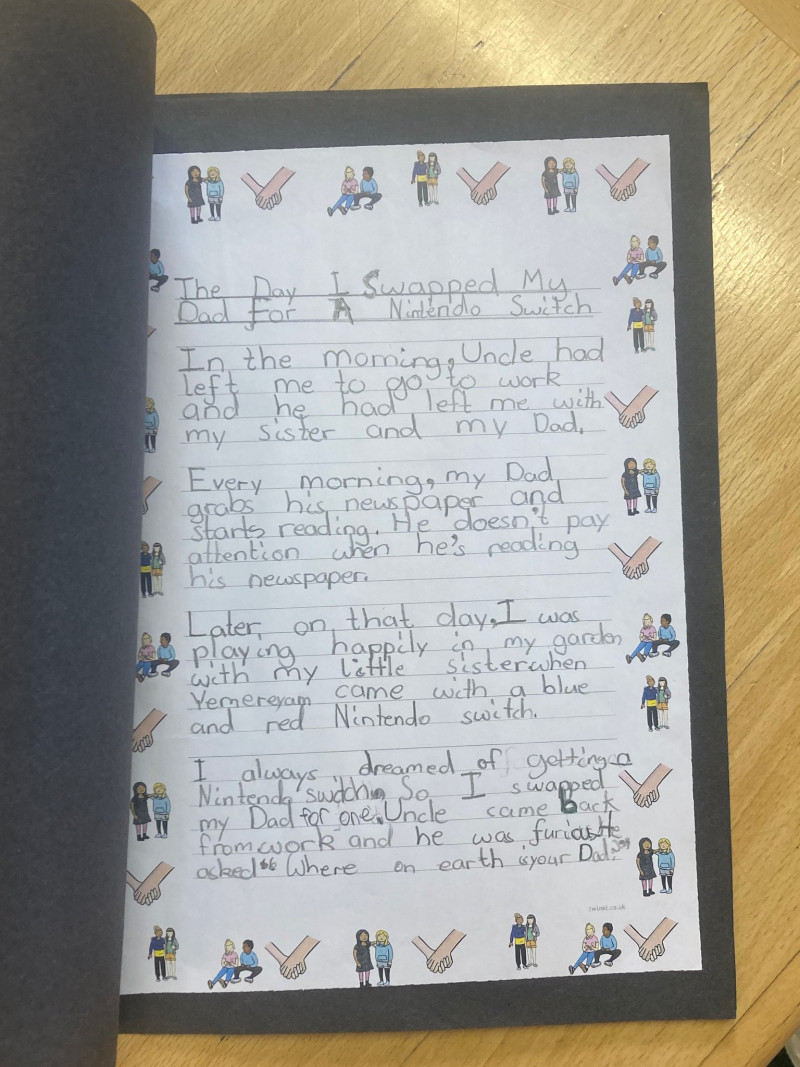 The Day I Swapped My
Dad for A Nintendo Switch
In the morning, Uncle had
left me to go to work
and he had left me with
my sister and my Dad.
Every morning, my Dad
grabs his newspaper and
starts reading. He doesn't pay
attention when he's reading
his newspaper.
Later on that day, I was
playing happily in my garden
with my little sister when
Yemereyam came with a blue
and red Nintendo switch.
I always dreamed of getting a
Nintendo So I swapped
my Dad for one. Uncle came back
from work and he was He
asked "Where on earth is your Dad?"
twinkl.co.uk